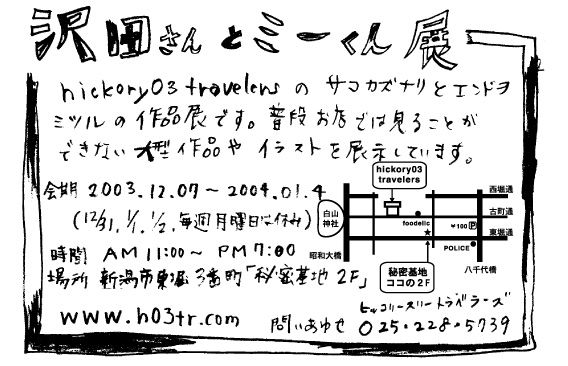 沢田さんとミーくん展
hickory03travelersのサコカズナリとエンドヲ
ミツルの作品展です。普段お店では見ることが
できない大型作品やイラストを展示しています。
会期 2003.12.07〜2004.01.4
(12/31.1/1.1/2.毎週月曜日は休み)
時間 AM11:00〜PM7:00
場所 新潟市東堀3番町「秘密基地2F」
www.h03tr.com
ヒッコリースリートラベラーズ
問いあわせ 025-228-5739
hickory03
travelers
西堀通
白山
神社
古町通
foodelic
¥100 P
東堀通
POLICE
昭和大橋
秘密基地
ココの2F
八千代橋